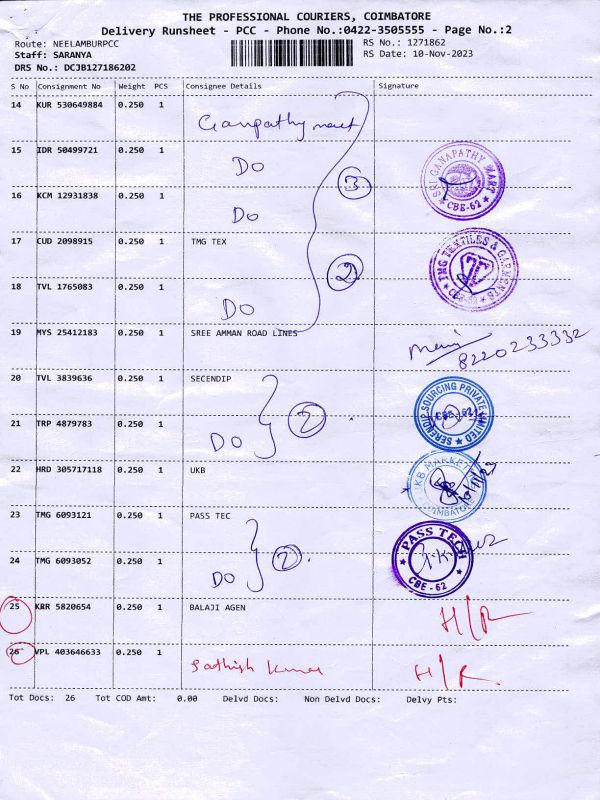 THE PROFESSIONAL COURIERS, COIMBATORE
Delivery Runsheet - PCC - Phone No.:0422-3505555 - Page No.:2
Route: NEELAMBURPCC RS No.: 1271862
Staff: SARANYA RS Date: 10-Nov-2023
DRS No.: DCJB127186202
S No Consignment No Weight PCS Consignee Details Signature
14 KUR 530649884 0.250 1 Ganpathy mart
15 IDR 50499721 0.250 1 DO
3
SRI GANAPATHY MART CBE-62
16 KCM 12931838 0.250 1 DO
17 CUD 2098915 0.250 1 TMG TEX
2
TMG TEXTILES & GARMENTS
18 TVL 1765083 0.250 1 DO
19 MYS 25412183 0.250 1 SREE AMMAN ROAD LINES
8220233332
20 TVL 3839636 0.250 1 SECENDIP
2
SERENDIP SOURCING PRIVATE LIMITED CBE-62
21 TRP 4879783 0.250 1 DO
22 HRD 305717118 0.250 1 UKB
UKB MARKET
23 TMG 6093121 0.250 1 PASS TEC
2
PASS TECH CBE-62
24 TMG 6093052 0.250 1 DO
25 KRR 5820654 0.250 1 BALAJI AGEN H/R
26 VPL 403646633 0.250 1 Sathish Kumar H/R
Tot Docs: 26 Tot COD Amt: 0.00 Delvd Docs: Non Delvd Docs: Delvy Pts: